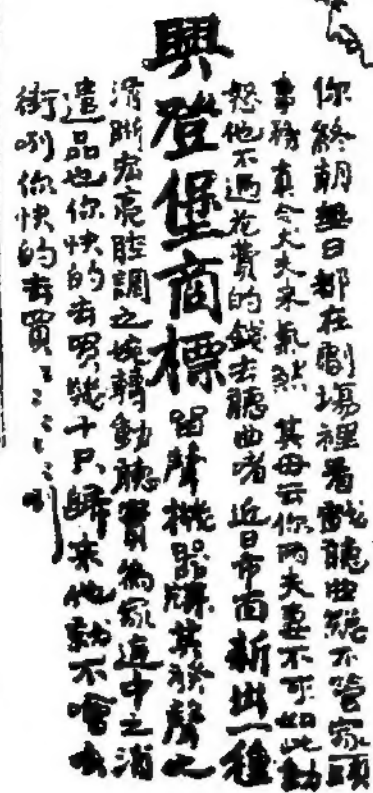 你終朝無日都在劇場裡看戲聽曲總不管家頭
事務真令犬夫來氣然其母云你两夫妻不可如此動
怒他不過花費的錢去聽曲啫近日市面新出一種
興登堡商標留聲機器牌其發聲之
清晰宏亮腔調之婉轉動聽實為家庭中之消
遣品也你快的去買幾十只歸來他就不會出
街咧你快的去買〻〻〻〻咧